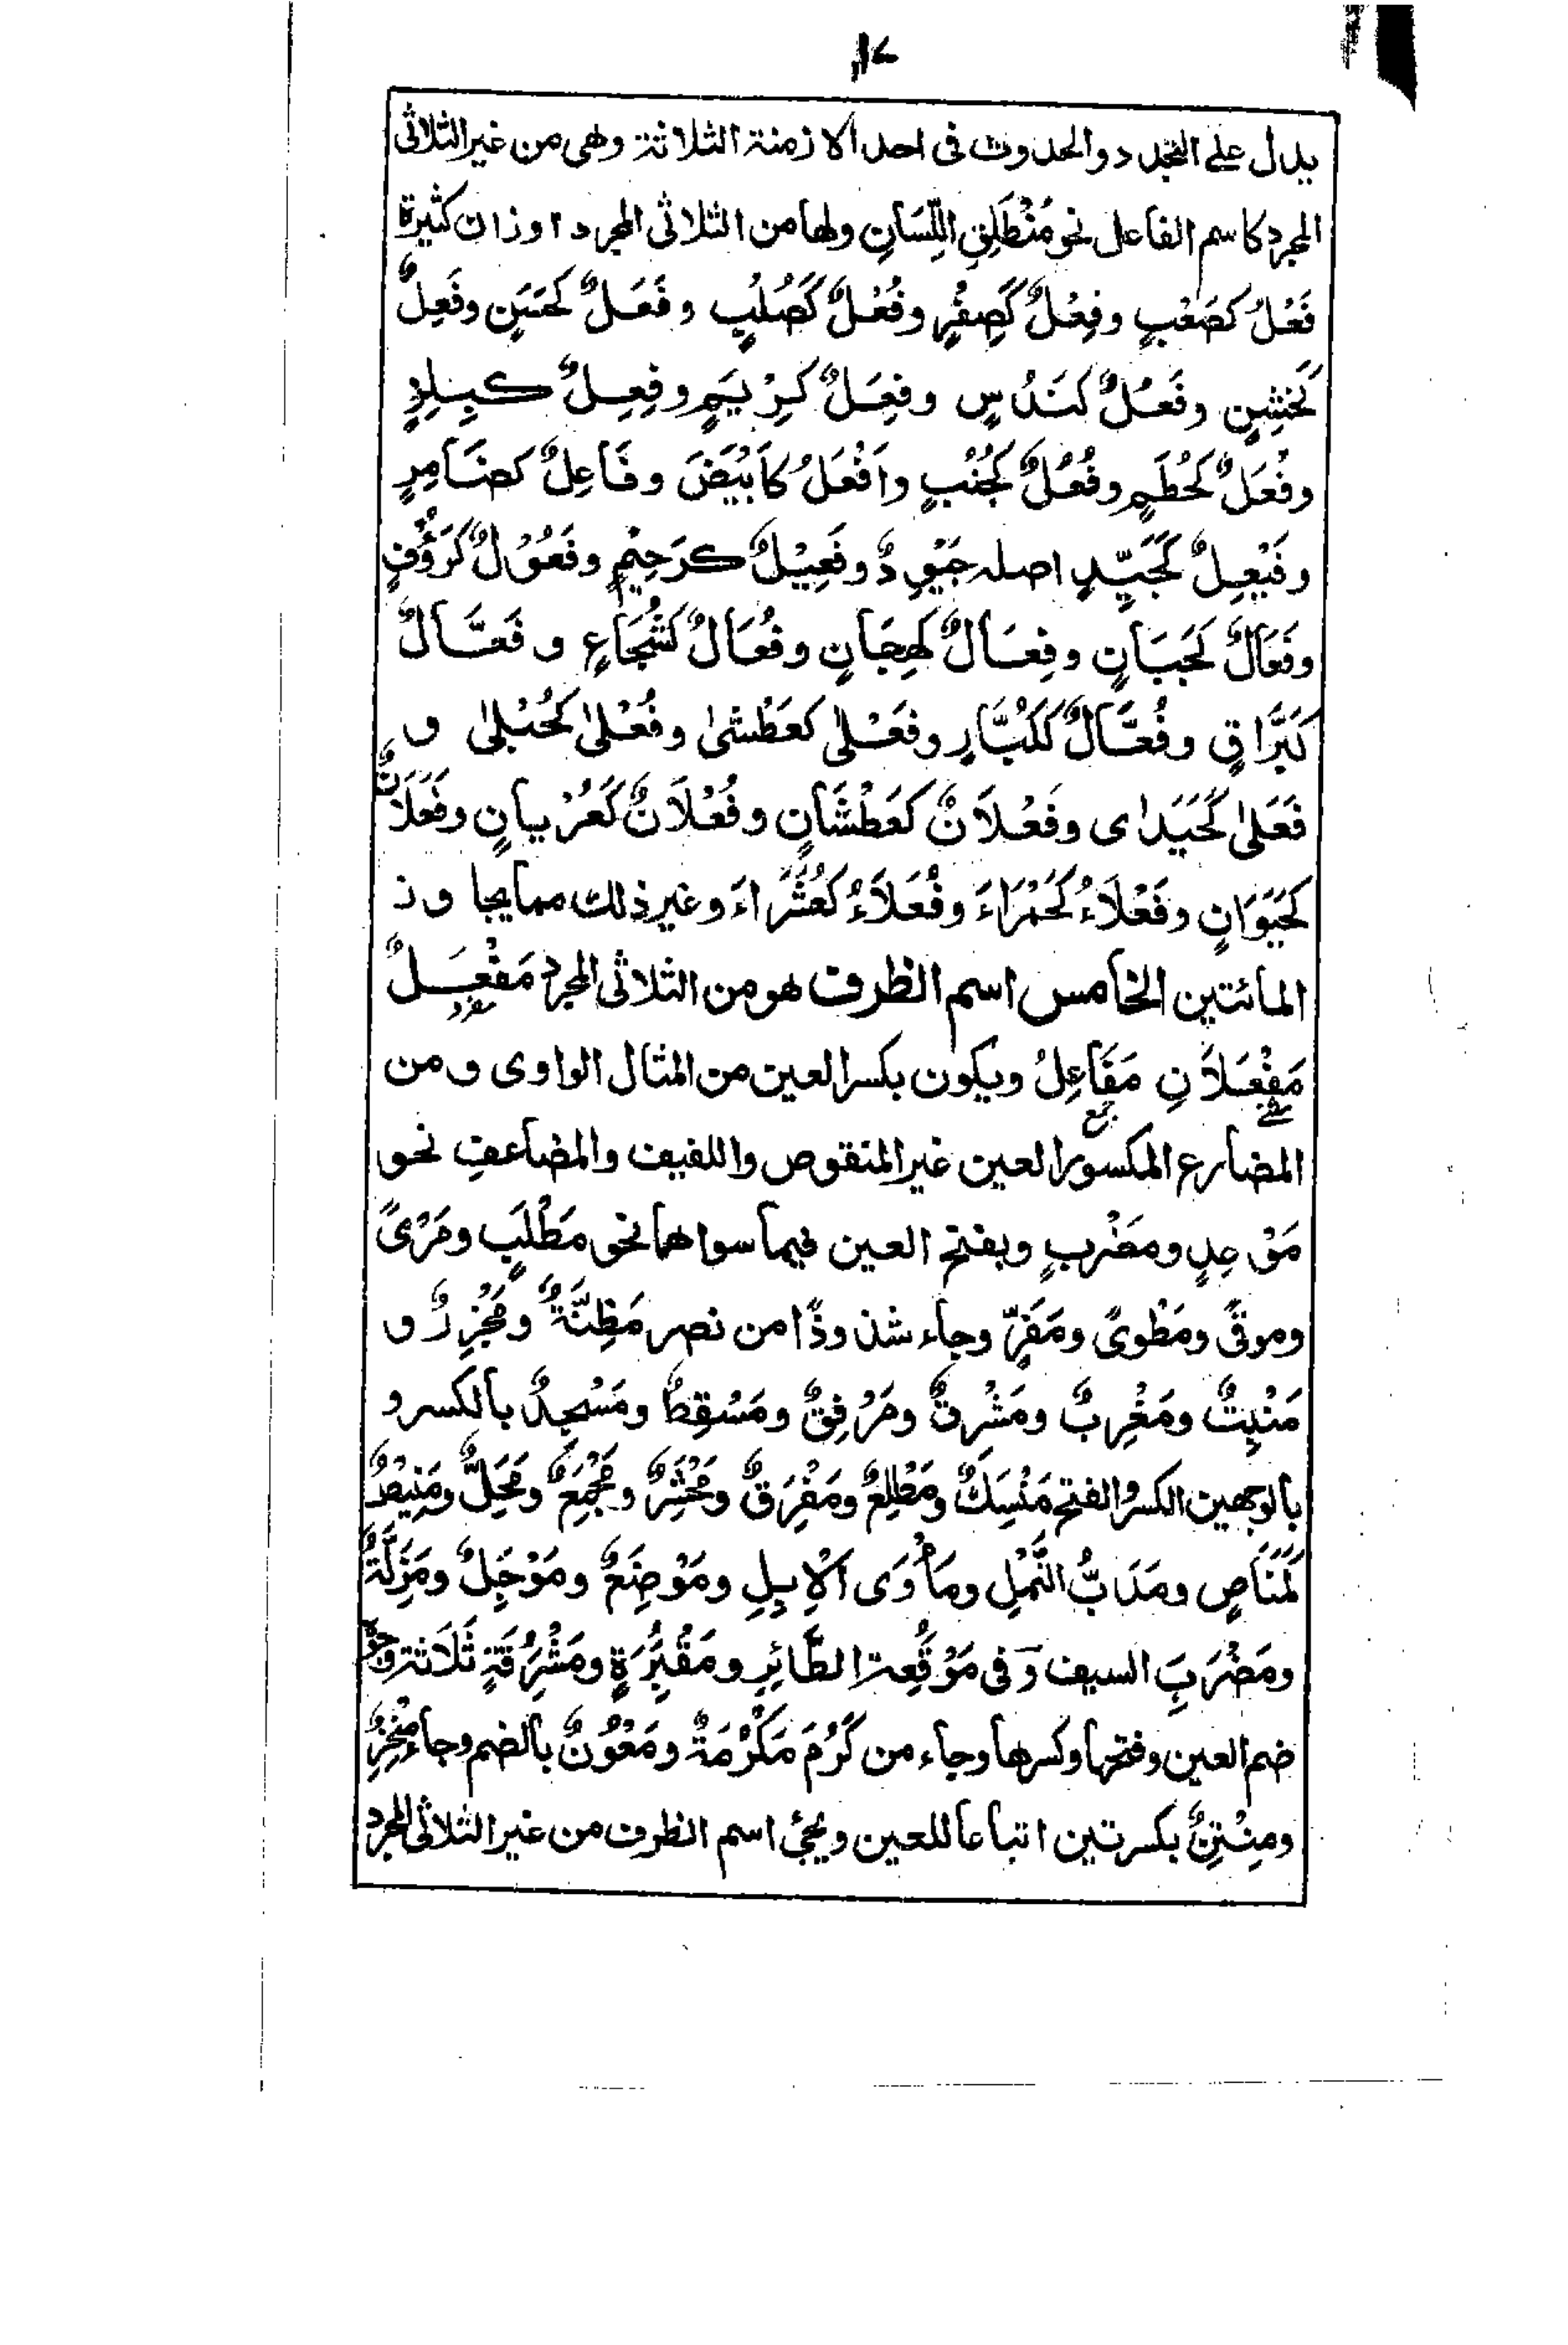 ١٧
يدل على التجدد والحدوث فى احد الازمنة الثلاثة وهى من غير الثلاثى
المجرد كاسم الفاعل نحو مُنْطَلِقِ اللِّسَانِ ولها من الثلاثى المجرد اوزان كثيرة
فَعْلٌ كصَعْبٍ وفِعْلٌ كَصِفْرٍ وفُعْلٌ كَصُلْبٍ وفَعَلٌ كَحَسَنٍ وفَعِلٌ
كَخَشِنٍ وفَعُلٌ كَنَدُسٍ وفِعَلٌ كَزِيَمٍ وفِعِلٌ كَبِلِزٍ
وفُعَلٌ كَحُطَمٍ وفُعُلٌ كَجُنُبٍ واَفْعَلُ كاَبْيَضَ وفَاعِلٌ كضَامِرٍ
وفَيْعِلٌ كَجَيِّدٍ اصله جَيْوِدٌ وفَعِيْلٌ كَرَحِيْمٍ وفَعُوْلٌ كَرَؤُفٍ
وفَعَالٌ كَجَبَانٍ وفِعَالٌ كَهِجَانٍ وفُعَالٌ كَشُجَاعٍ وفَعَّالٌ
كَبَرَّاقٍ وفُعَّالٌ كَكُبَّارٍ وفَعْلىٰ كَعَطْشىٰ وفُعْلىٰ كَحُبْلىٰ و
فَعَلىٰ كَحَيَدىٰ وفَعْلَانٌ كَعَطْشَانٍ وفُعْلَانٌ كَعُرْيانٍ وفَعَلَانٌ
كَحَيَوَانٍ وفَعْلَاءُ كَحَمْرَاءَ وفُعَلَاءُ كَعُشَرَاءَ وغير ذلك مما يجاوز
المائتين الخامس اسم الظرف هو من الثلاثى المجرد مَفْعِلٌ
مَفْعَلَانِ مَفَاعِلُ ويكون بكسر العين من المثال الواوى ومن
المضارع المكسور العين غير المنقوص واللفيف والمضاعف نحو
مَوْحِدٍ ومَضْرِبٍ وبفتح العين فيما سواهما نحو مَطْلَبٍ ومَرْمىً
وموقىً ومَطْوىً ومَفَرٍّ وجاء شذوذًا من نصر مَظِنَّةٌ ومَجْزِرٌ و
مَنْبِتٌ ومَغْرِبٌ ومَشْرِقٌ ومَرْفِقٌ ومَسْقِطٌ ومَسْجِدٌ بالكسر و
بالوجهين الكسر والفتح مَنْسِكٌ ومَطْلِعٌ ومَفْرِقٌ ومَحْشِرٌ ومَجْمِعٌ ومَحِلٌّ
لَمَنَاصٍ ومَدَبُّ النَّمْلِ ومَأْوَى الْاِبِلِ ومَوْضِعٌ ومَوْجِلٌ ومَزِلَّةٌ
ومَضْرَبِ السيف وفى مَوْقِعة الطَّائِرِ ومَقْبَرَةٍ ومَشْرَقَةٍ ثَلَاثة
ضم العين وفتحها وكسرها وجاء من كَرُمَ مَكْرُمَةٌ ومَعُوْنٌ بالضم وجاء مِنْخِرٌ
ومِنْتِنٌ بكسرتين اتباعا للعين ويجئ اسم الظرف من غير الثلاثى المجرد